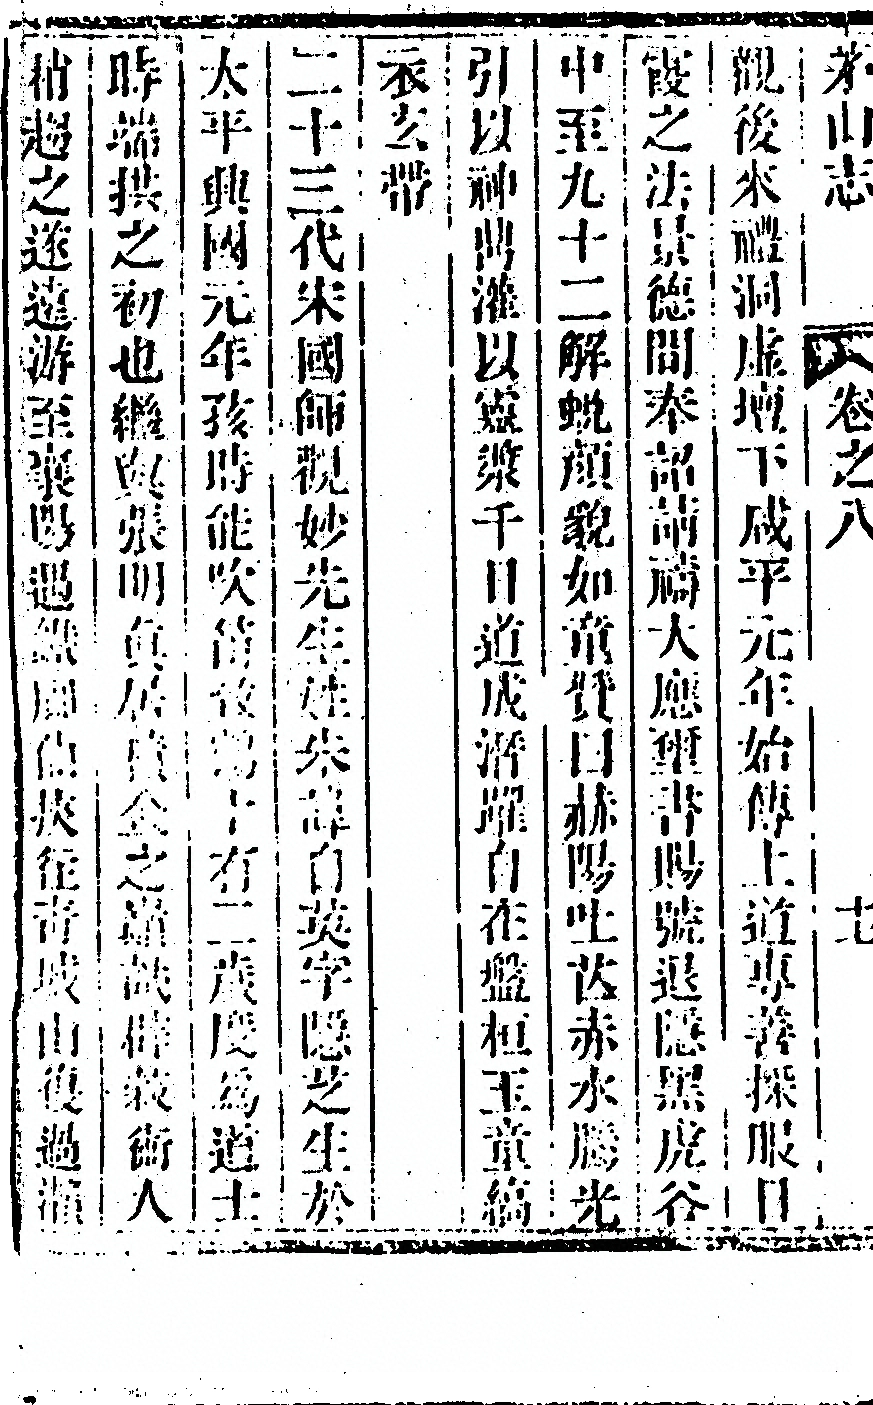 茅山志 卷之八 七
觀後來醴洞虛壇下咸平元年始傳上道專善採服日
霞之法景德間奉詔請禱大應璽書賜號退隱黑虎谷
中至九十二解蛻顏貌如童贊曰赫陽吐芒赤水騰光
引以神芮灌以靈漿千日道成潛躍自在盤桓玉童縞
衣玄帶
二十三代宋國師觀妙先生姓朱諱自英字隱芝生於
太平興國元年孩時能吹笛牧 十有二歲度為道士
時端拱之初也繼與張明真居 金之 人
稍趨之遂遠游至襄陽過 廟 疾往青城山復過瀨